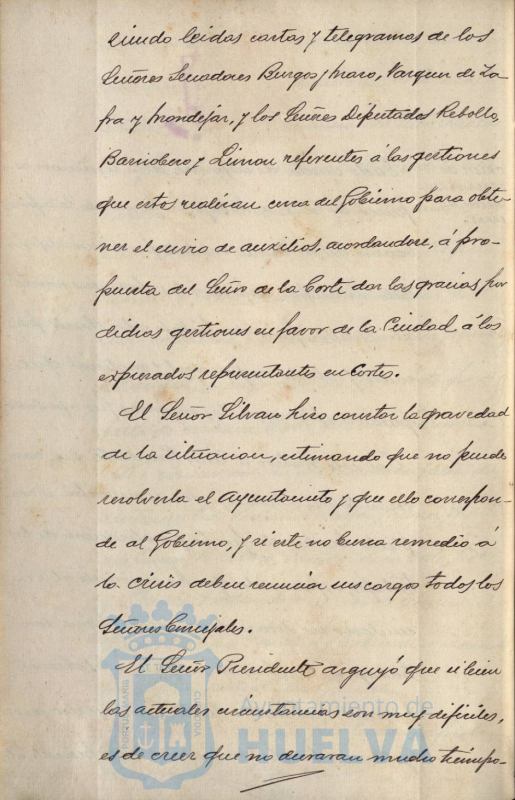 siendo leidas cartas y telegramas de los
Señores Senadores Burgos y Mazo, Marques de Za-
fra y Mondejar, y los Señores Diputados Rebollo,
Barriobero y Limon referentes á las gestiones
que estos realizan cerca del Gobierno para obte-
ner el envio de auxilios, acordandose, á pro-
puesta del Señor de la Corte dar las gracias por
dichas gestiones en favor de la Ciudad á los
expresados representantes en Cortes.
El Señor Silvan hizo constar la gravedad
de la situacion, estimando que no puede
resolverla el Ayuntamiento y que ello correspon-
de al Gobierno, y si este no busca remedio á
la crisis deben renunciar sus cargos todos los
Señores Concejales.
El Señor Presidente arguyó que si bien
las actuales circunstancias son muy dificiles,
es de creer que no duraran mucho tiempo-
Ayuntamiento de
HUELVA